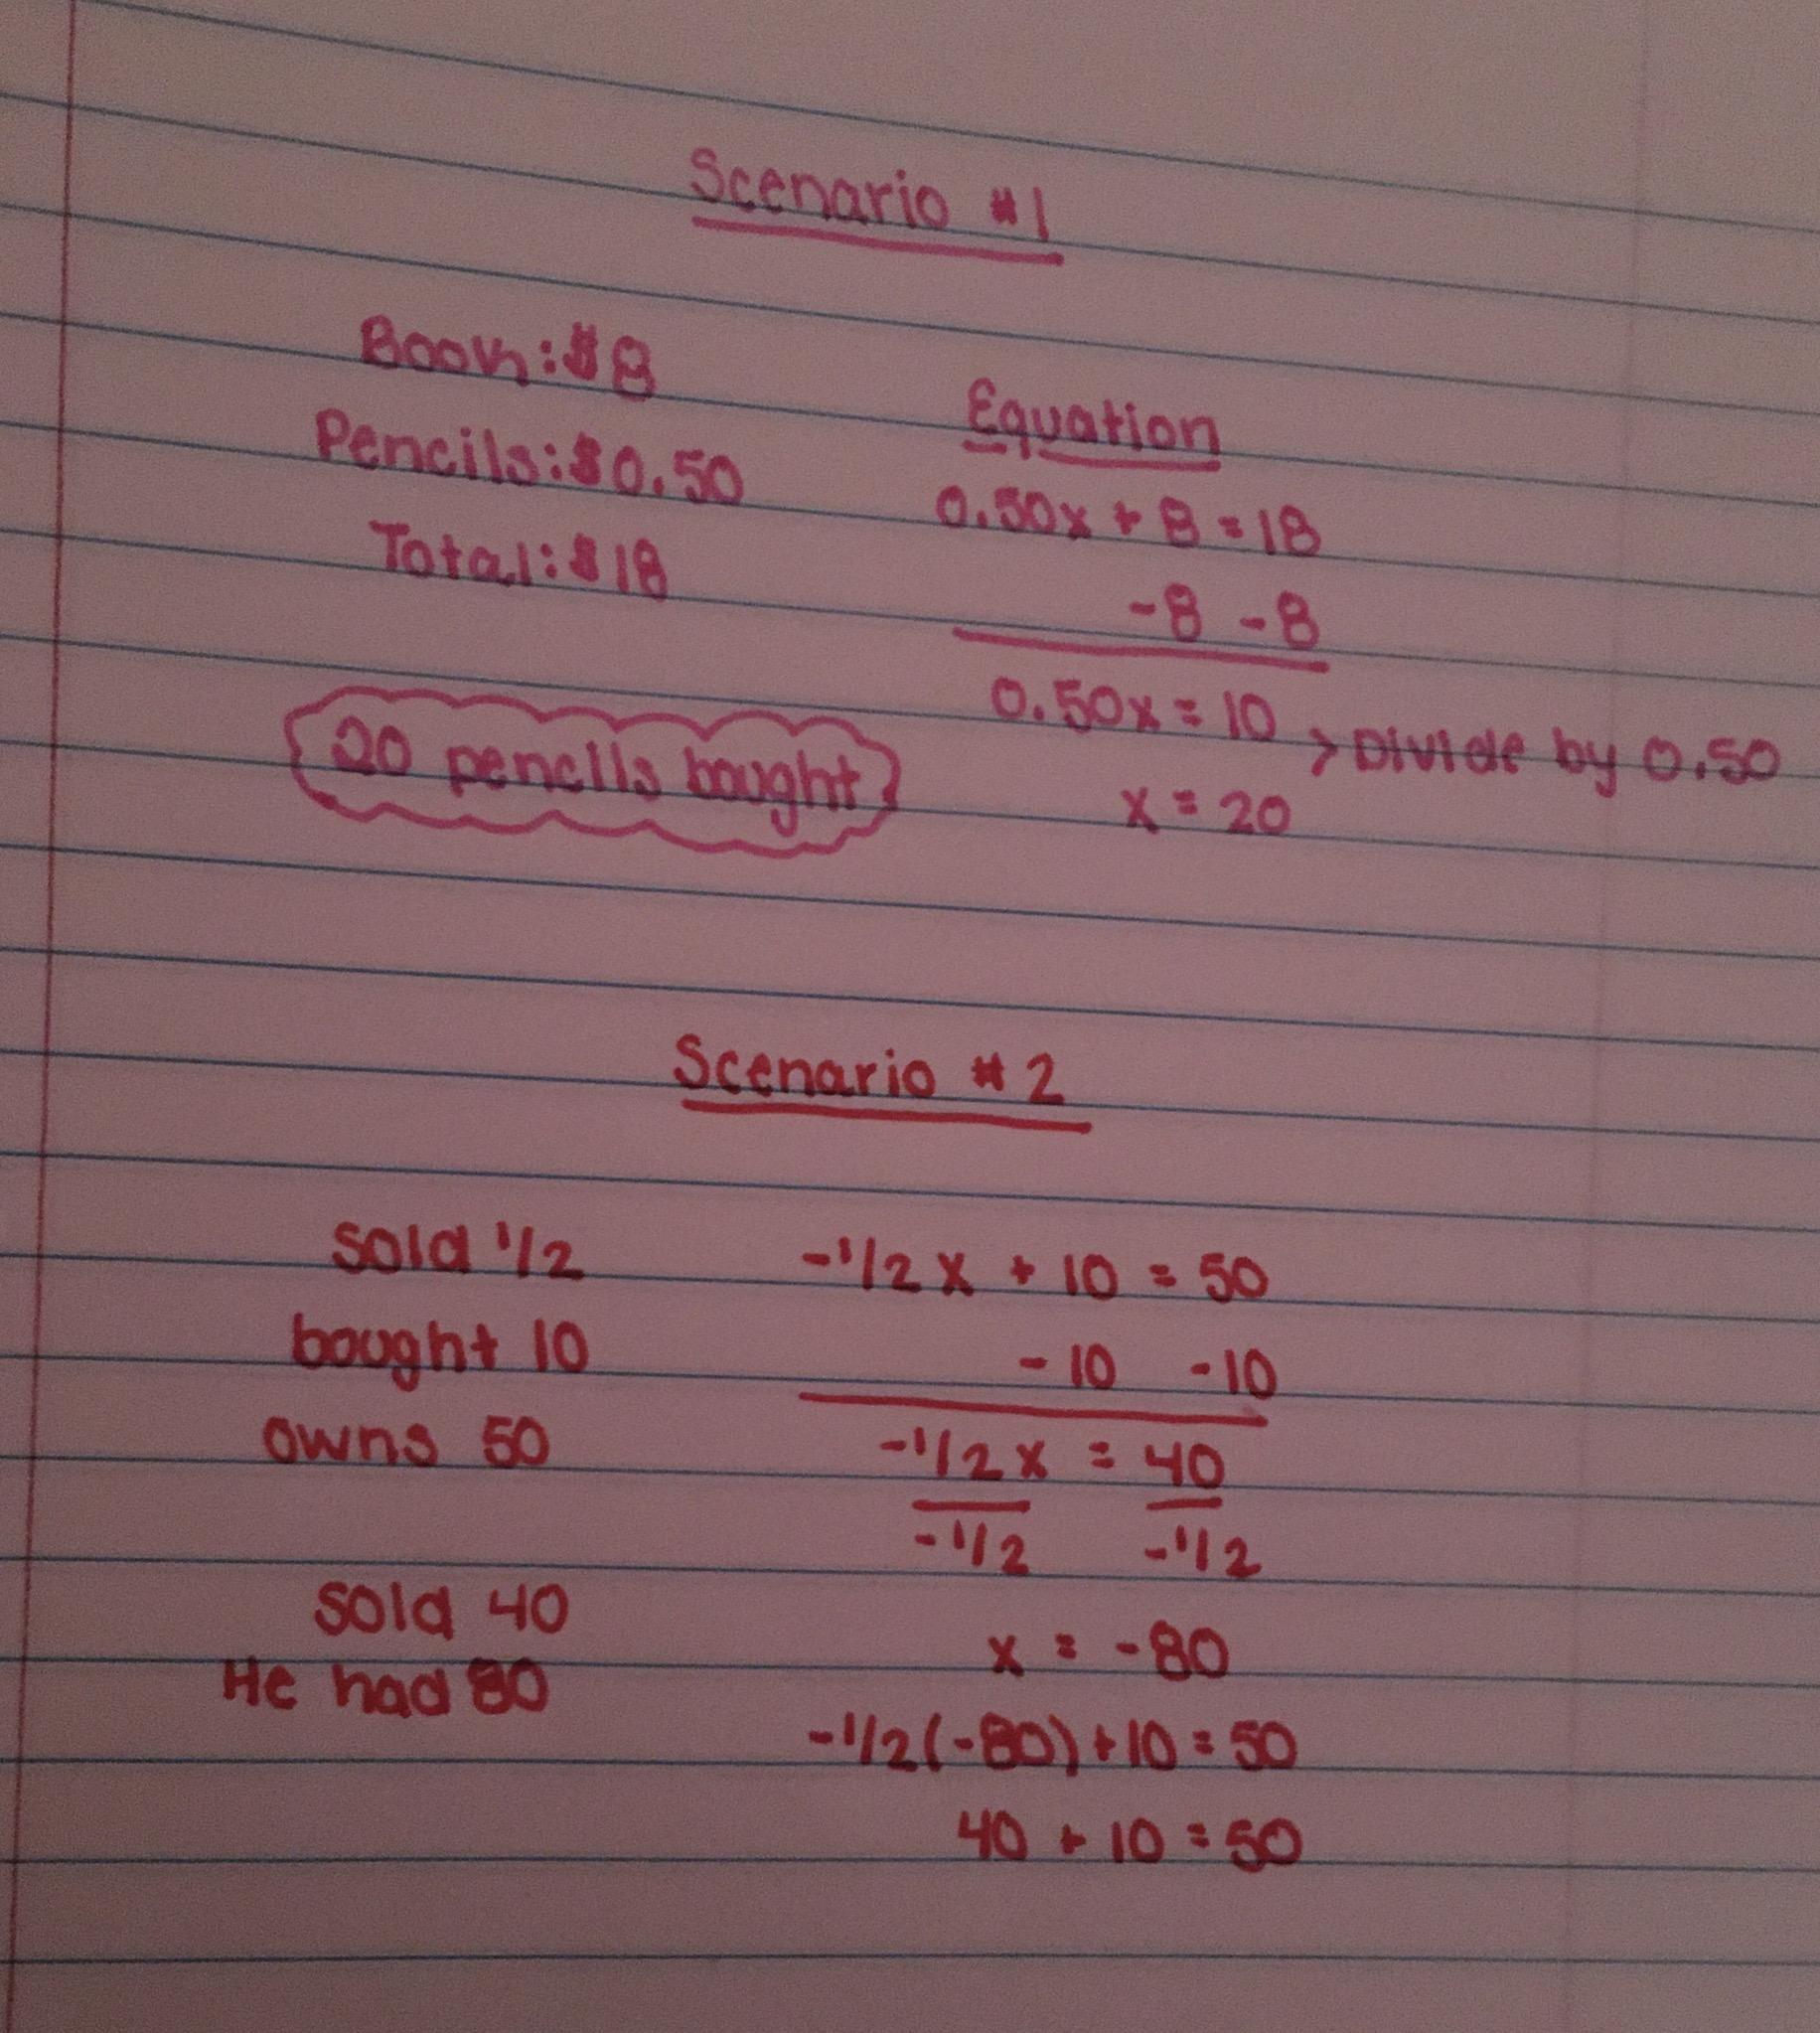 Scenario #1
Book: $8
Pencils: $0.50
Total: $18
Equation
0.50x + 8 = 18
-8 -8
0.50x = 10 > Divide by 0.50
x = 20
20 pencils bought
Scenario #2
sold 1/2
bought 10
owns 50
-1/2x + 10 = 50
-10 -10
-1/2x = 40
-1/2 -1/2
x = -80
sold 40
He had 80
-1/2(-80) + 10 = 50
40 + 10 = 50